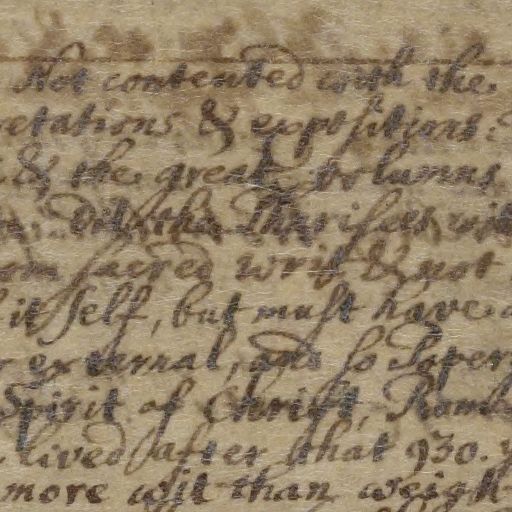 Not contented with the
etations & expositions
& the great volumns
did the Pharisees wit
sacred writ & not
it self, but must have
external, and so Super
Spirit of Christ, Rumb
lived after that 930. y
more wit than weigh